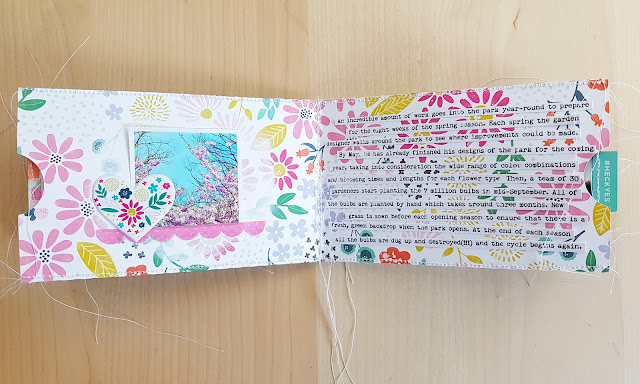 An incredible amount of work goes into the park year-round to prepare
for the eight weeks of the spring season. Each spring the garden
designer walks around the park to see where improvements could be made.
By May, he has already finished his designs of the park for the coming
year, taking into consideration the wide range of color combinations
and blooming times and lengths for each flower type. Then, a team of 30
gardeners start planting the 7 million bulbs in mid-September. All of
the bulbs are planted by hand which takes around three months. New
grass is sown before each opening season to ensure that there is a
fresh, green backdrop when the park opens. At the end of each season
all the bulbs are dug up and destroyed(!!!) and the cycle begins again.
#HECKYES